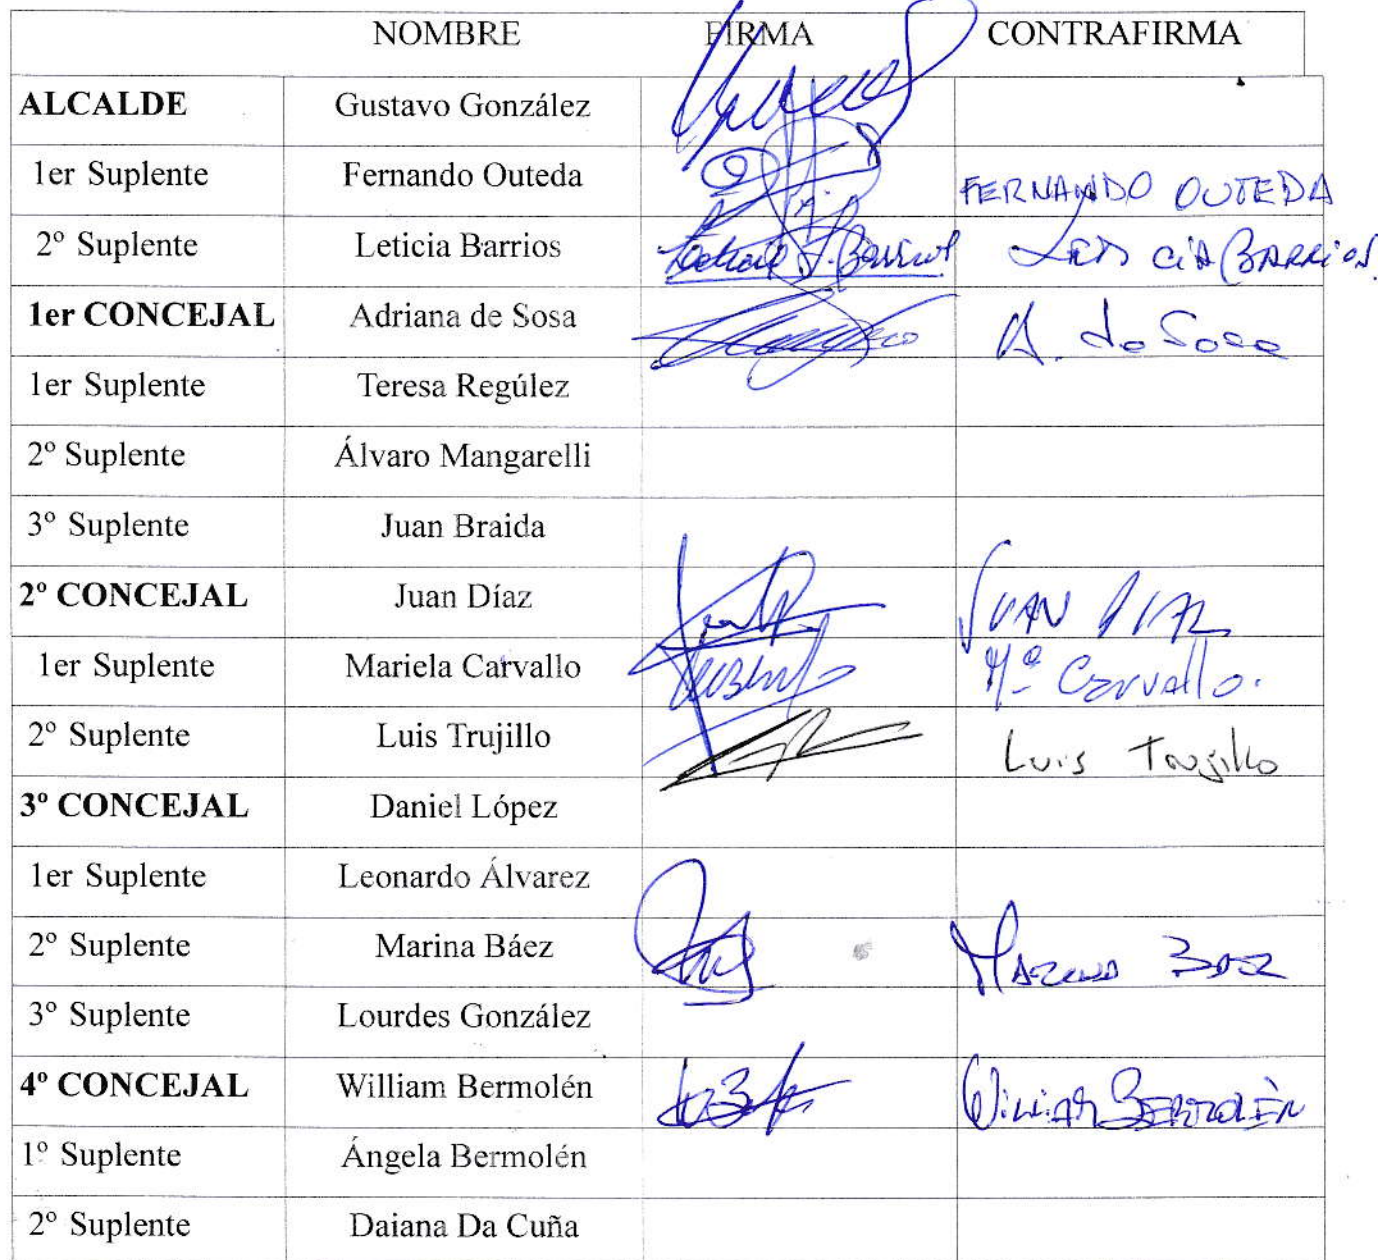 NOMBRE FIRMA CONTRAFIRMA
ALCALDE Gustavo González
1er Suplente Fernando Outeda FERNANDO OUTEDA
2º Suplente Leticia Barrios LETICIA BARRIOS
1er CONCEJAL Adriana de Sosa A. de Sosa
1er Suplente Teresa Regúlez
2º Suplente Álvaro Mangarelli
3º Suplente Juan Braida
2º CONCEJAL Juan Díaz JUAN DIAZ
1er Suplente Mariela Carvallo Mª Carvallo.
2º Suplente Luis Trujillo Luis Trujillo
3º CONCEJAL Daniel López
1er Suplente Leonardo Álvarez
2º Suplente Marina Báez MARINA BAEZ
3º Suplente Lourdes González
4º CONCEJAL William Bermolén WILLIAM BERMOLÉN
1º Suplente Ángela Bermolén
2º Suplente Daiana Da Cuña